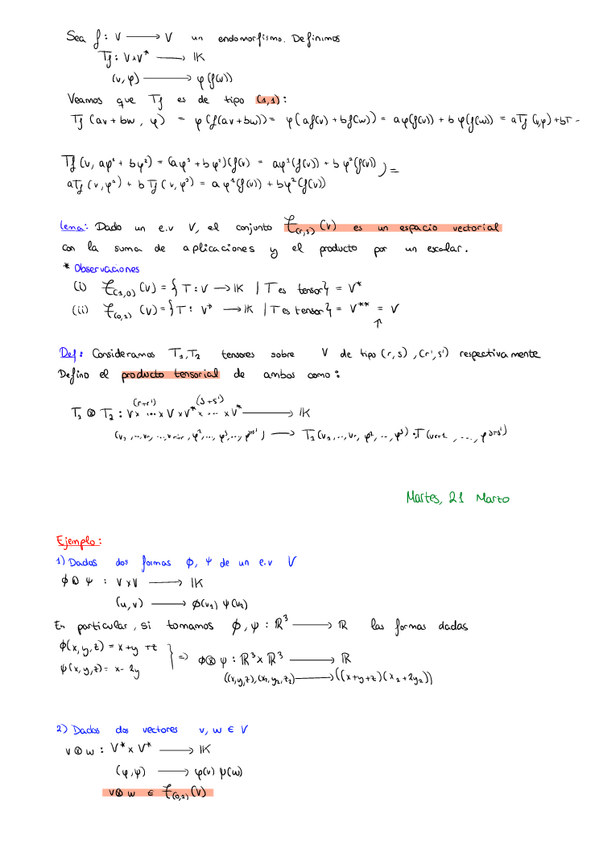 Sea f : V ⟶ V un endomorfismo. Definimos
Tf : V×V* ⟶ IK
(v, φ) ⟶ φ(f(v))
Veamos que Tf es de tipo (1,1):
Tf (av + bw, φ) = φ(f(av+bw)) = φ(af(v) + bf(w)) = aφ(f(v)) + bφ(f(w)) = aTf(v,φ)+bT-
Tf (v, aφ¹ + bφ²) = (aφ¹ + bφ²)(f(v)) = aφ¹(f(v)) + bφ²(f(v)) ) =
aTf (v, φ¹) + bTf (v, φ²) = aφ¹(f(v)) + bφ²(f(v))
Lema: Dado un e.v V, el conjunto T(r,s) (V) es un espacio vectorial
con la suma de aplicaciones y el producto por un escalar.
* Observaciones
(i) T(1,0) (V) = { T : V ⟶ IK | T es tensor} = V*
(ii) T(0,1) (V) = { T : V* ⟶ IK | T es tensor} = V** = V
↑
Def: Consideramos T₁,T₂ tensores sobre V de tipo (r,s), (r',s') respectivamente
Defino el producto tensorial de ambos como:
(r+r') (s+s')
T₁ ⊗ T₂ : V× ... ×V×V*× ... ×V* ⟶ IK
(v₁,...,vr,...,vr+r', φ¹,..., φˢ,..., φˢ⁺ˢ') ⟶ T₁(v₁,...,vr, φ¹,..., φˢ)·T(vr+1, ..., φˢ⁺ˢ')
Martes, 21 Marzo
Ejemplo:
1) Dados dos formas ϕ, ψ de un e.v V
ϕ ⊗ ψ : V×V ⟶ IK
(u,v) ⟶ ϕ(v₁) ψ(v₂)
En particular, si tomamos ϕ, ψ : ℝ³ ⟶ ℝ las formas dadas
ϕ(x,y,z) = x+y+z
ψ(x,y,z) = x-2y
} ⇒ ϕ⊗ψ : ℝ³×ℝ³ ⟶ ℝ
((x,y,z),(x₂,y₂,z₂)) ⟶ ((x+y+z)(x₂+2y₂))
2) Dados dos vectores v, w ∈ V
v⊗w : V*×V* ⟶ IK
(φ,ψ) ⟶ φ(v) μ(w)
v⊗w ∈ T(0,2)(V)